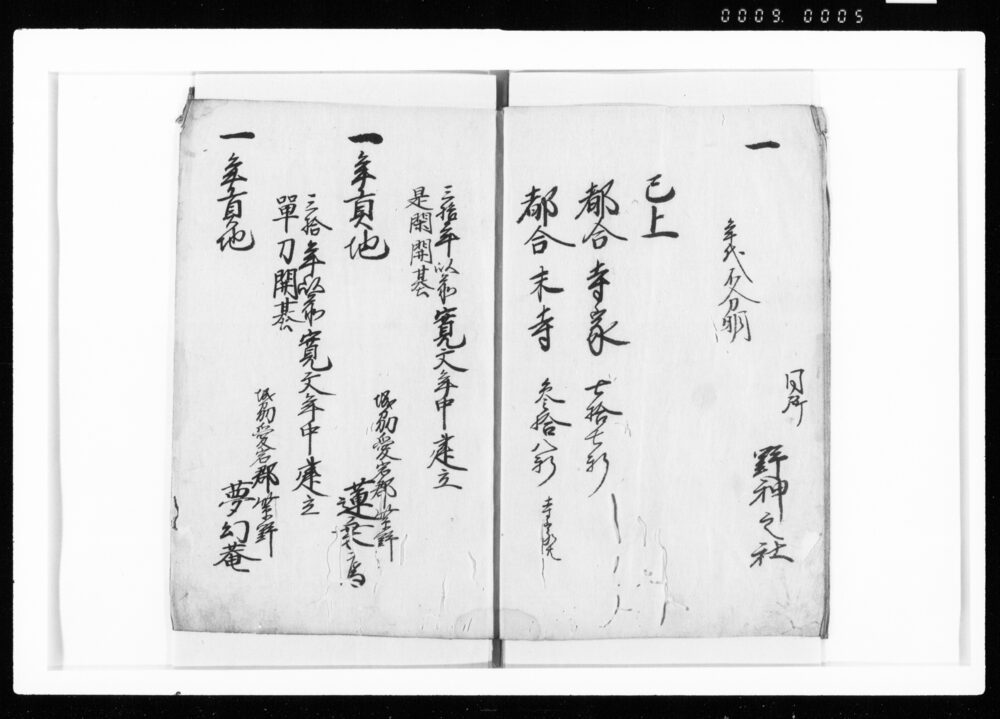 0009 0005
一
年代不分明
同所
野神之社
已上
都合寺家 七拾七軒
都合末寺 参拾八軒
三拾年以前寛文年中建立
是閑開基
一年貢地
城州愛宕郡紫野
三拾年以前寛文年中建立
單刀開基
一年貢地
城州愛宕郡紫野
夢幻菴